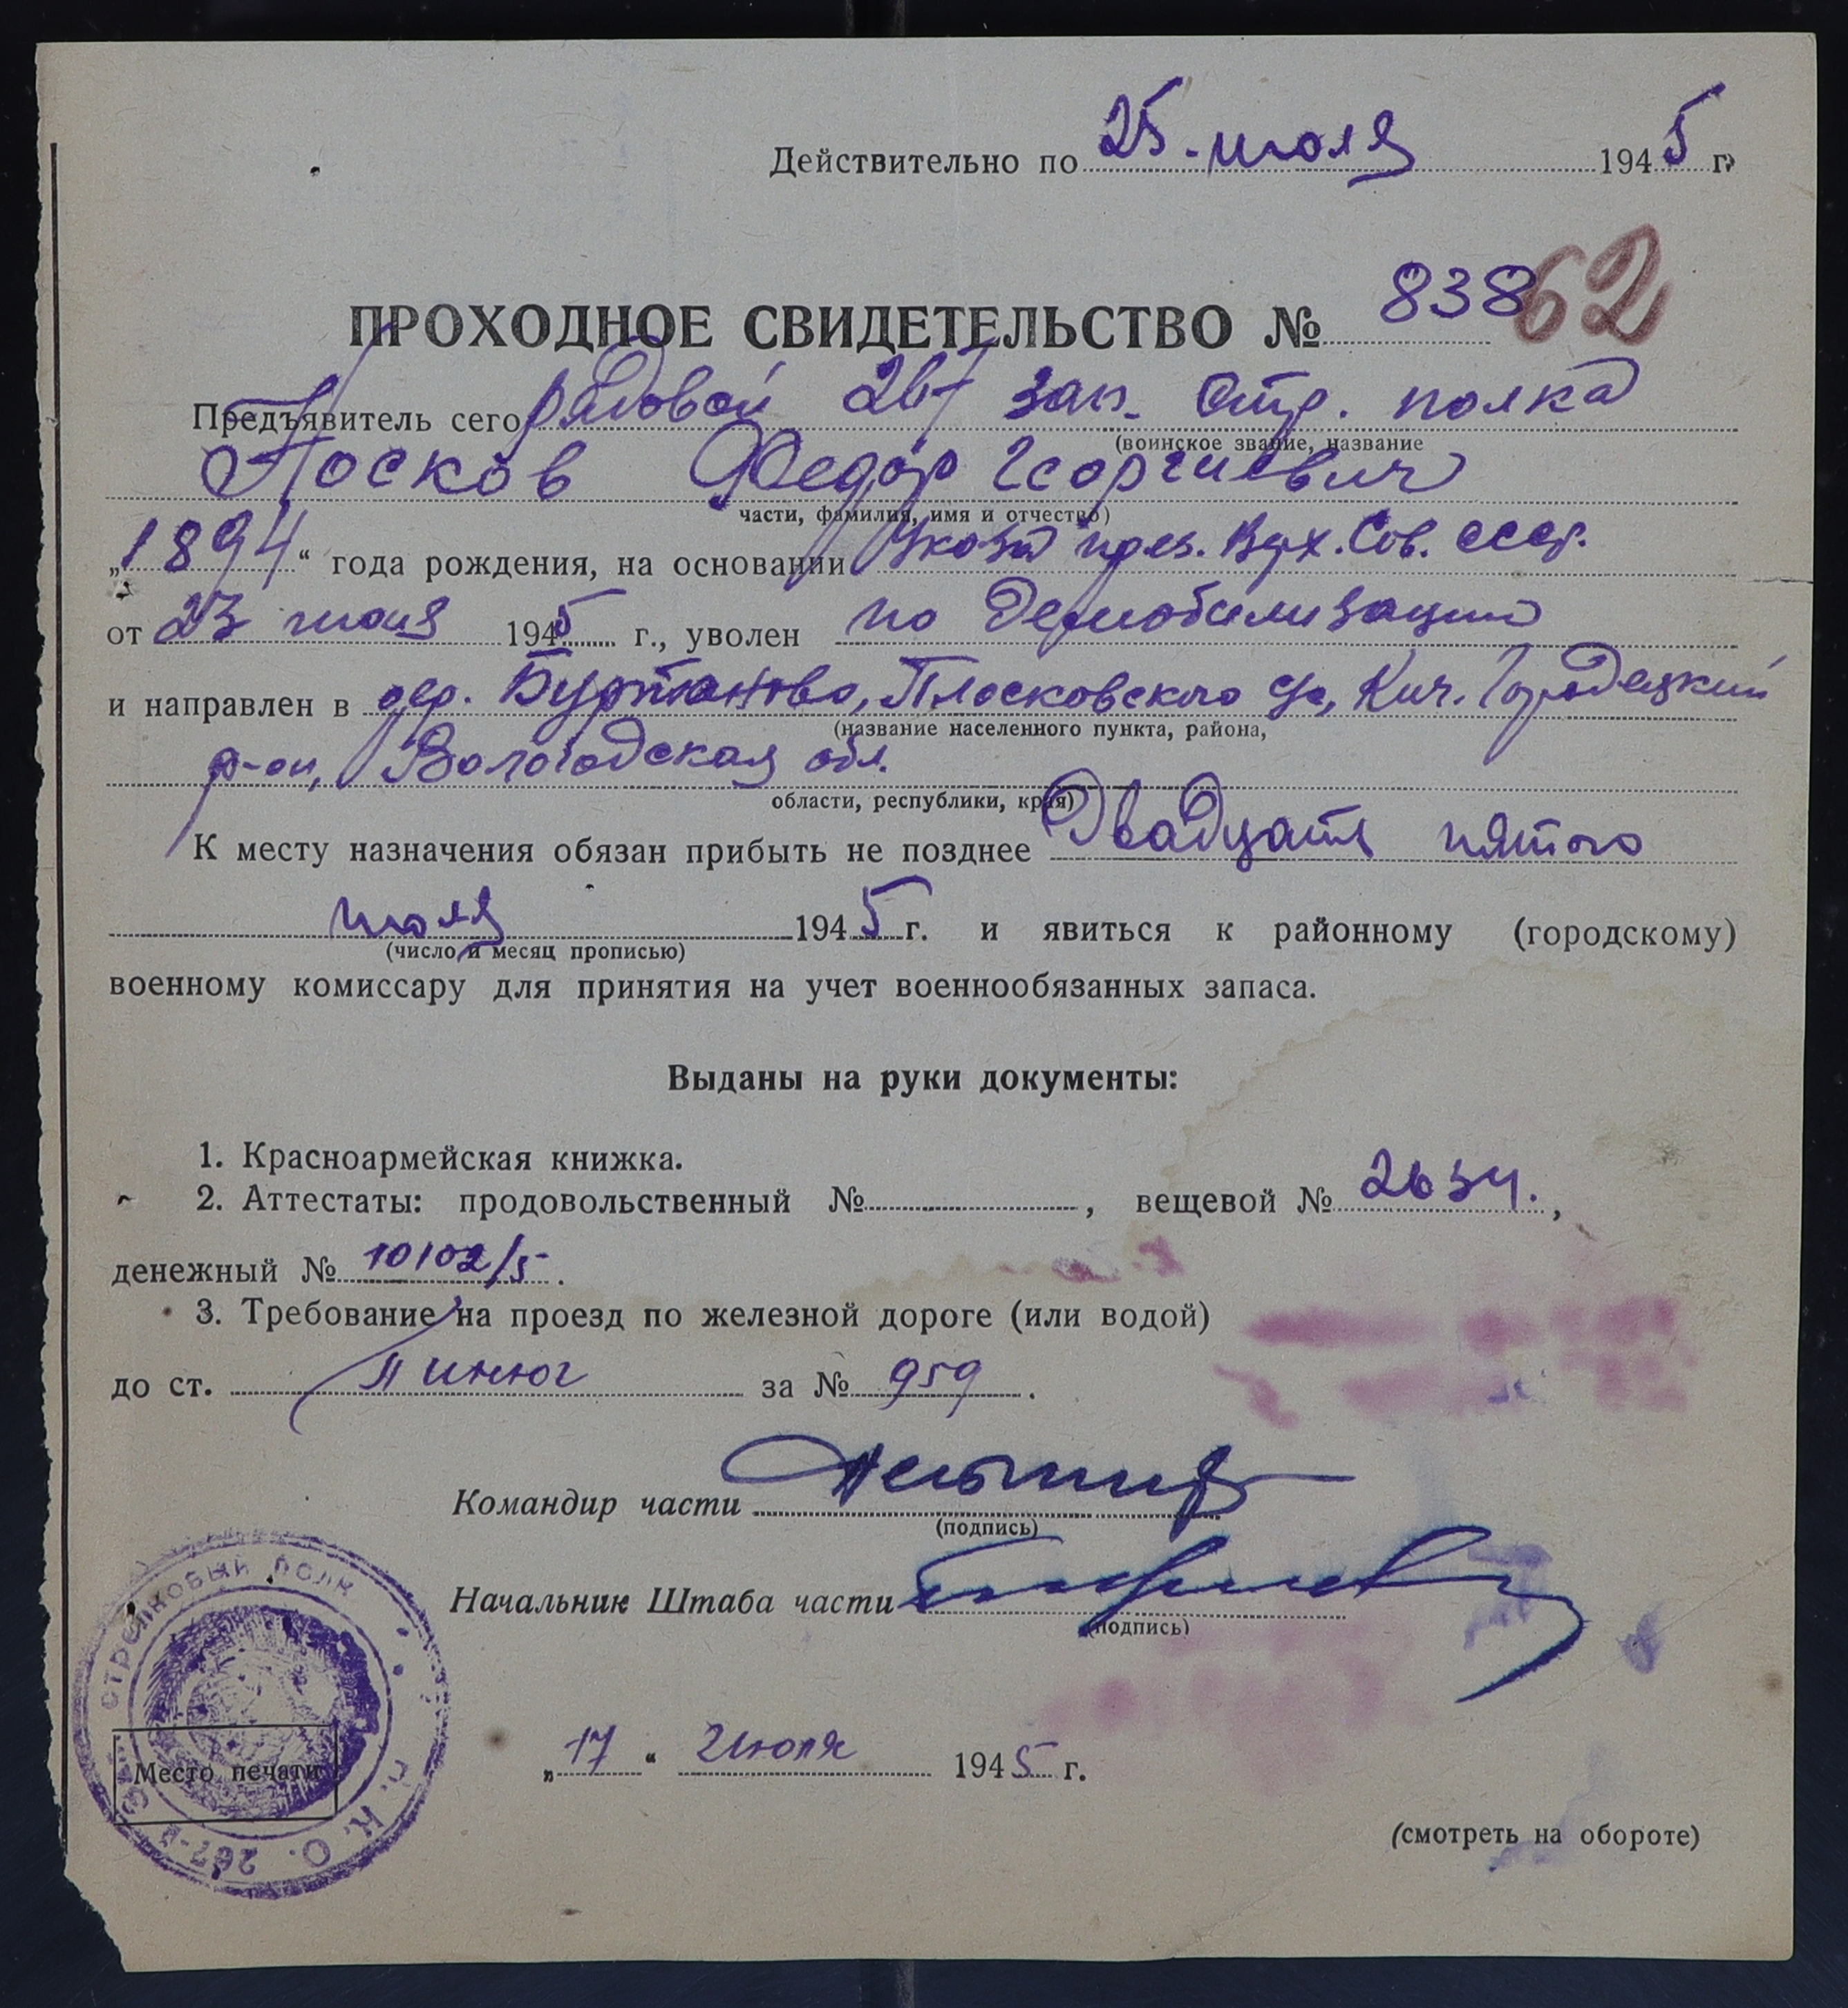 Действительно по 25. июля 1945 г.
62
ПРОХОДНОЕ СВИДЕТЕЛЬСТВО № 838
Предъявитель сего рядовой 267 зап. стр. полка
(воинское звание, название
Посков Федор Георгиевич
части, фамилия, имя и отчество)
„1894“ года рождения, на основании Указа през. Верх. Сов. СССР.
от 23 июня 1945 г., уволен по Демобилизации
и направлен в дер. Буртаново, Плосковского с/с, Кич. Городецкий
(название населенного пункта, района,
р-он, Вологодская обл.
области, республики, края)
К месту назначения обязан прибыть не позднее Двадцать пятого
июля 1945 г. и явиться к районному (городскому)
(число и месяц прописью)
военному комиссару для принятия на учет военнообязанных запаса.
Выданы на руки документы:
1. Красноармейская книжка.
2. Аттестаты: продовольственный № , вещевой № 2634. ,
денежный № 10102/5 .
3. Требование на проезд по железной дороге (или водой)
до ст. Пинюг за № 959 .
Командир части
(подпись)
Начальник Штаба части
(подпись)
СТРЕЛКОВЫЙ ПОЛК
267-Й
Место печати
„17“ Июля 1945 г.
(смотреть на обороте)